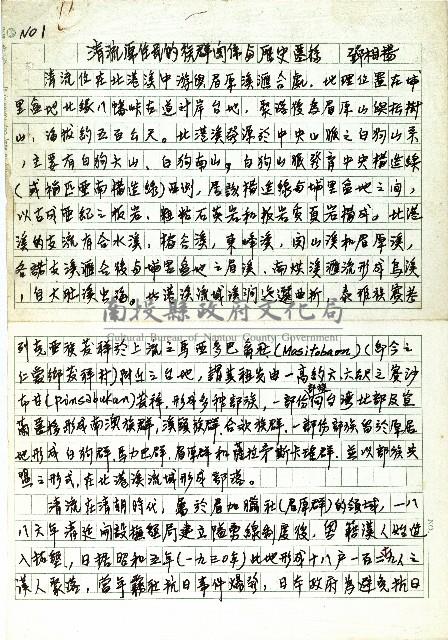 NO1
清流原住民的族群関係與歷史墓椿 鄧相揚
清流位在北港溪中游與眉原溪滙合處，地理位置在埔
里盆地北緣八幡崎古道对岸台地，聚落後為眉原山與松樹
山，海拔約五百公尺。北港溪發源於中央山脈之白狗山系
，主要有白狗大山、白狗南山，白狗山脈發育中央橫造線
（或梅匹亜南構造線）西側，居該構造線與埔里盆地之間，
以古成世紀之板岩、粗粒石英岩和板岩質頁岩構成。北港
溪的支流有合水溪、楷合溪、東峰溪、関山溪和眉原溪，
各諸支溪滙合後與埔里盆地之眉溪、南烘溪滙流形成烏溪
，自大肚溪出海。北港溪流域溪澗迂迴曲折，泰雅族賽芸
南投縣政府文化局
Cultural Bureau of Nantou County Government
列克亜族发祥於上流之馬亜多巴翁社（Masitobaon）（即今之
仁愛鄉发祥村）附近之台地，謂其祖先由一高約六六○尺之賓沙
布甘（pinsabukan）发祥，形成多種部族，一部份部族向台灣北部及宜
蘭墓椿形成南澳族群，溪頭族群，合歡族群。一部份部族留於原居
地形成白狗群、馬力巴群、眉原群和薩拉茅斯卡瑤群。並以部族攻
盟之形式，在北港溪流域形成部落。
清流在清朝時代，屬於眉加臘社（眉原群）的領域，一八
八六年清廷開設撫墾局建立隘勇線制度後，粤籍漢人始進
入拓墾，日據昭和五年（一九三○年）此地形成十八戶一百三十九人之
漢人聚落，當年霧社抗日事件爆發，日本政府為避免抗日